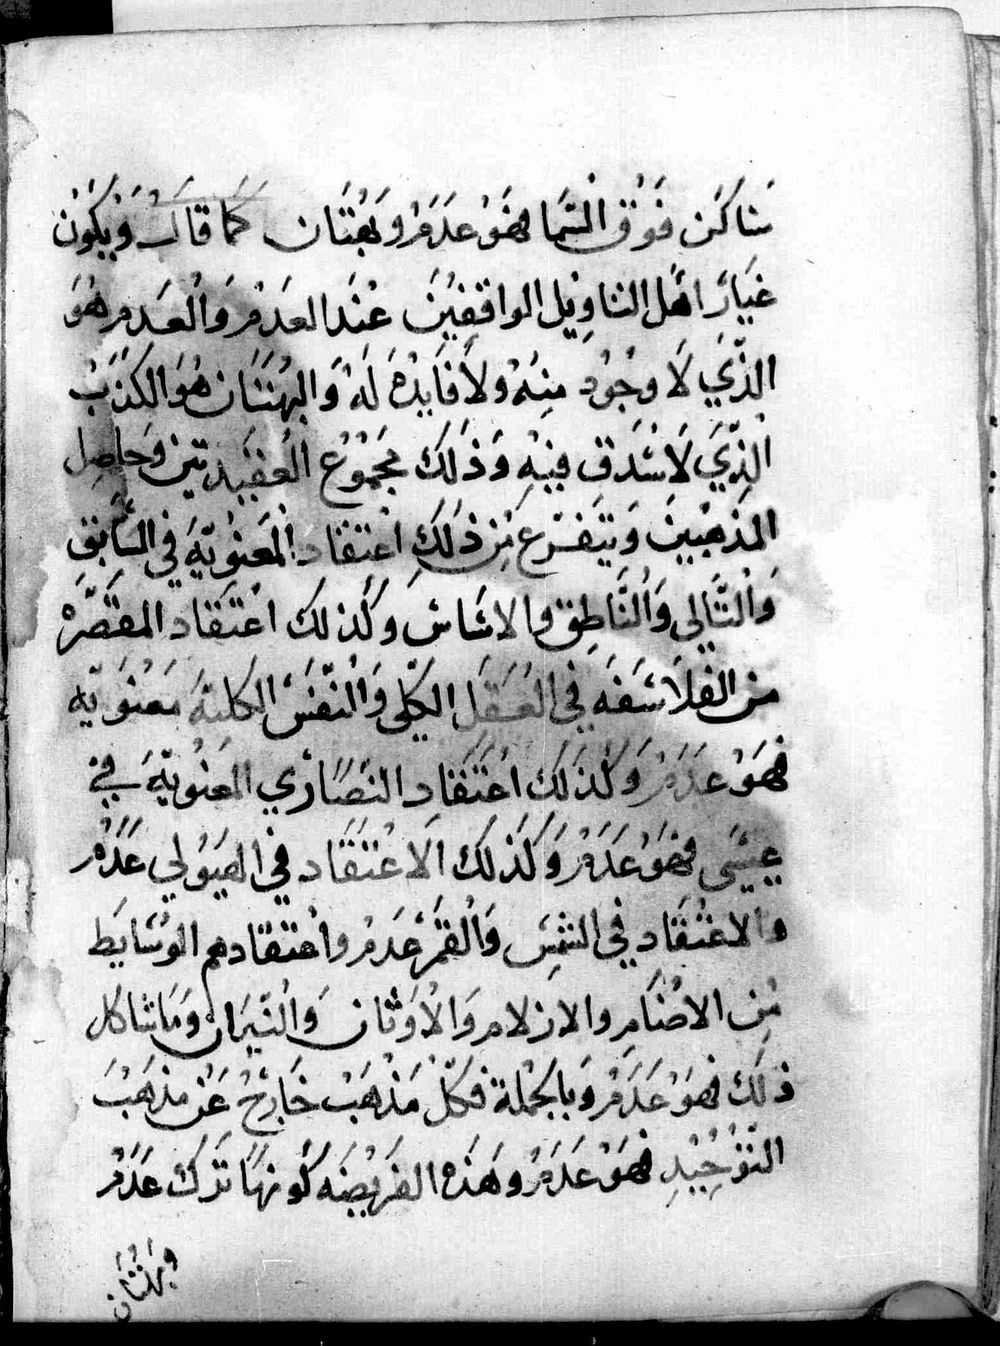 ساكن فوق السما فهو عدم وبهتان كما قال ويكون
غيار اهل التاويل الواقفين عند العدم والعدم هو
الذي لا وجود منه ولا فايده له والبهتان هو الكذب
الذي لا شدق فيه وذلك مجموع العقيدتين وحاصل
المذهبين ويتفرع من ذلك اعتقاد المعنوية في السابق
والتالي والناطق والاساس وكذلك اعتقاد المقصره
من الفلاسفه في العقل الكلي والنفس الكلية معنوية
فهو عدم وكذلك اعتقاد النصاري المعنوية في
عيسى فهو عدم وكذلك الاعتقاد في الهيولي عدم
والاعتقاد في الشمس والقمر عدم واعتقادهم الوسايط
من الاصنام والازلام والاوثان والنيران وما شاكل
ذلك فهو عدم وبالجملة فكل مذهب خارج عن مذهب
التوحيد فهو عدم وهذه الفريضه كونها ترك عدم
وبهتان